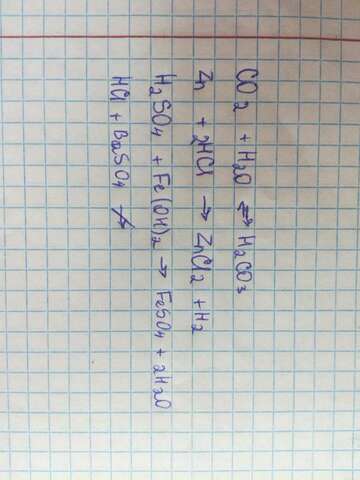 CO2 + H2O ⇌ H2CO3
Zn + 2HCl → ZnCl2 + H2
H2SO4 + Fe(OH)2 → FeSO4 + 2H2O
HCl + BaSO4 ↛